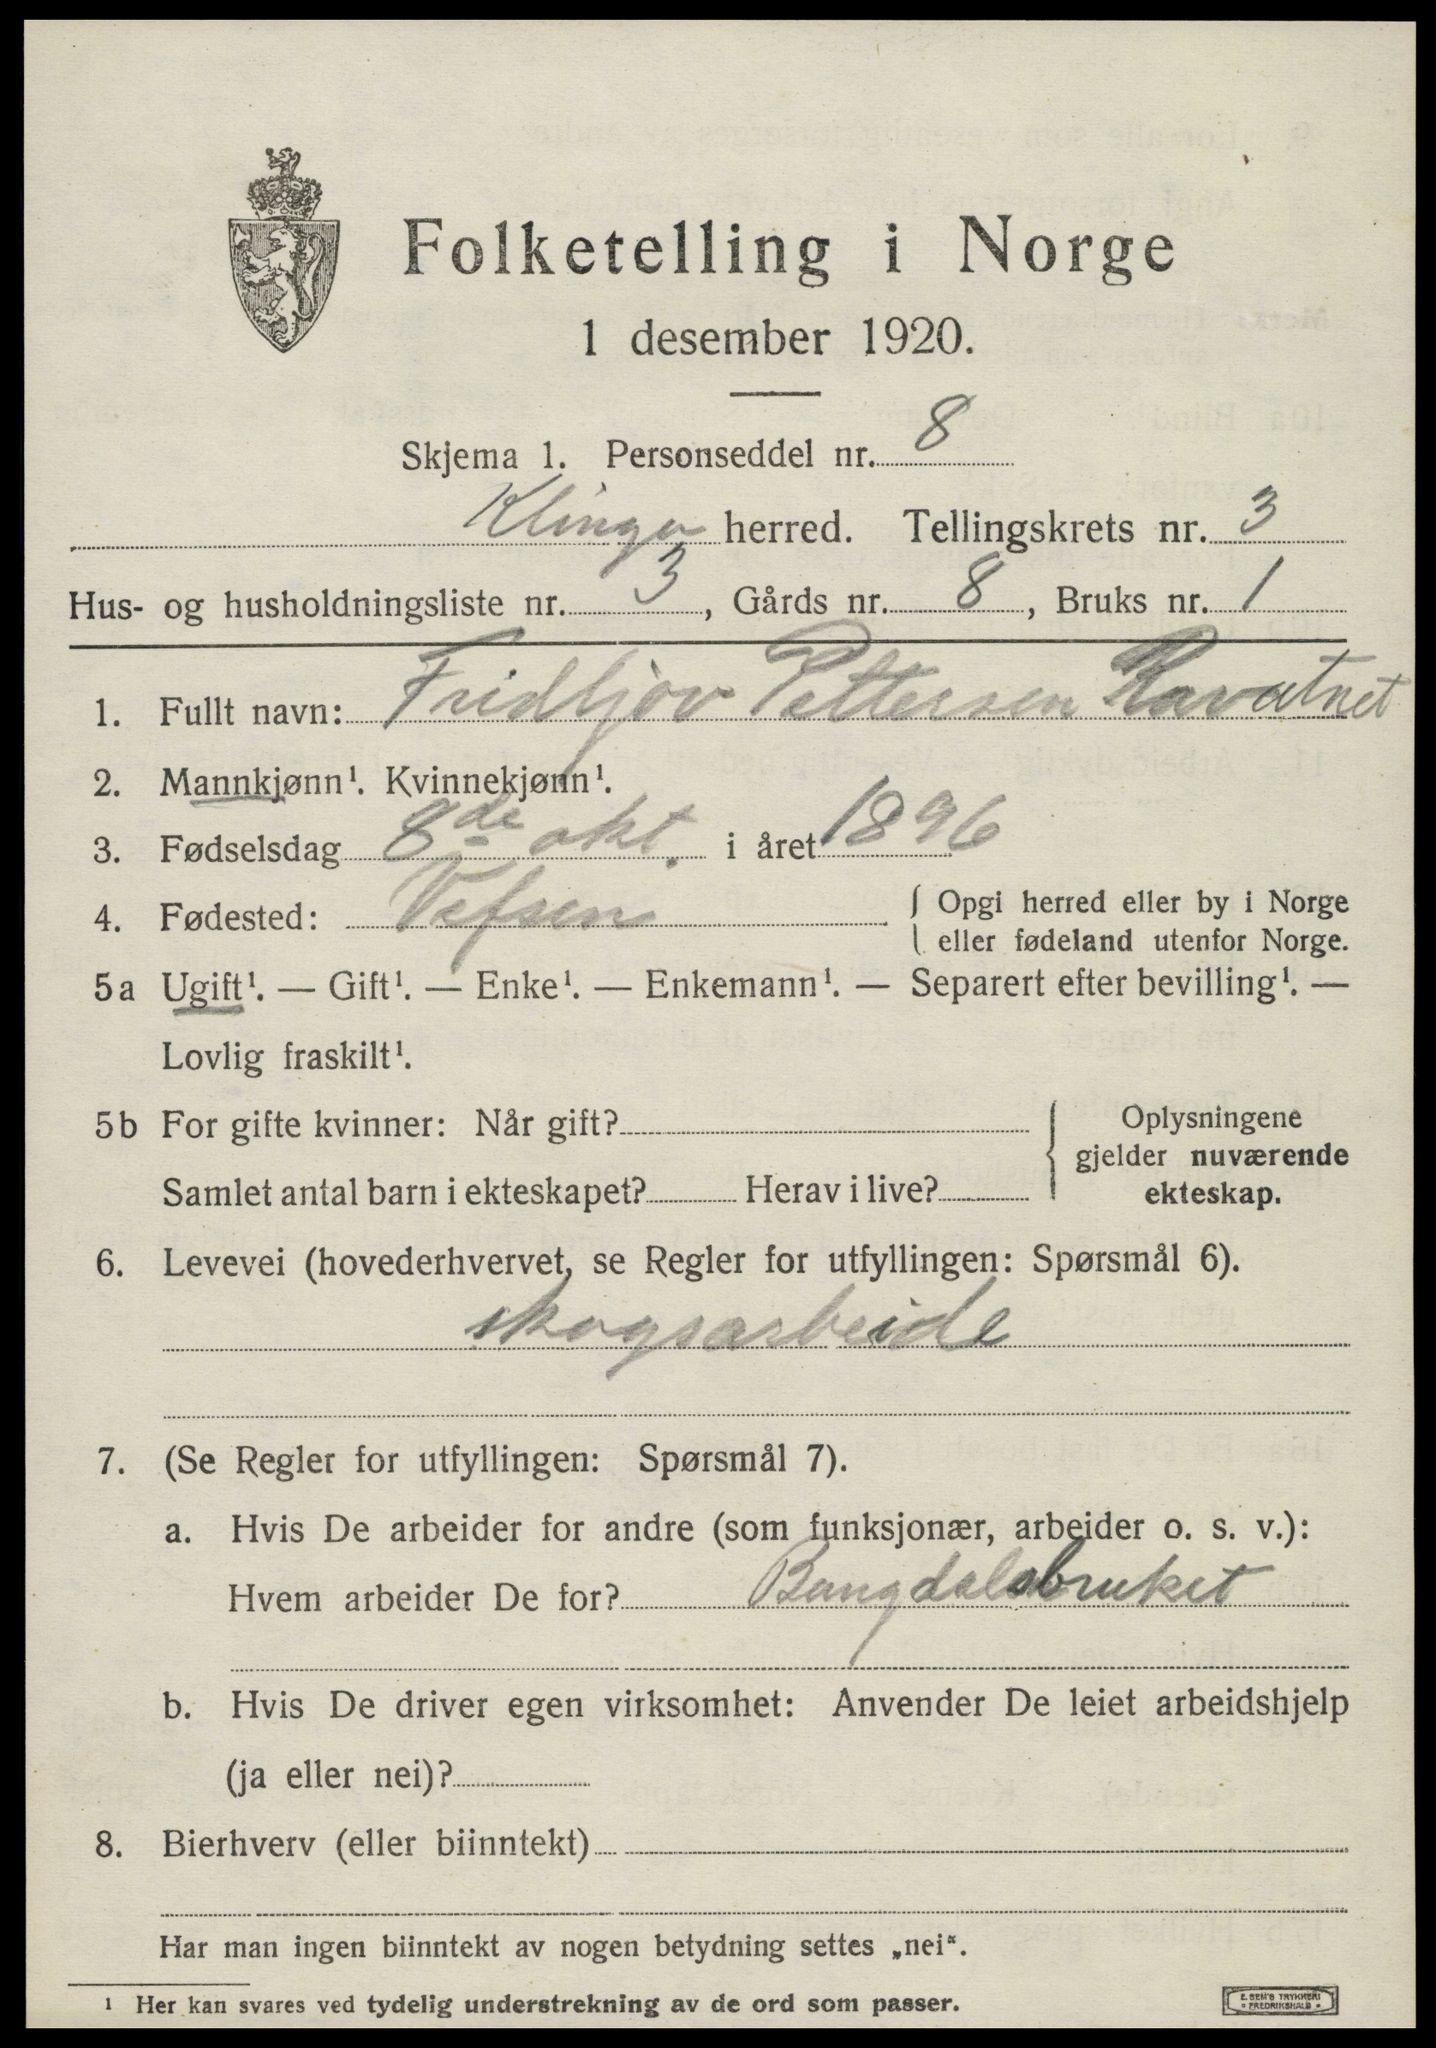 Folketelling i Norge
1 desember 1920.
Skjema 1. Personseddel nr. 8
Klinga herred. Tellingskrets nr. 3
Hus- og husholdningsliste nr. 3, Gårds nr. 8, Bruks nr. 1
1. Fullt navn: Fridtjov Pettersen Ravatnet
2. Mannkjønn¹. Kvinnekjønn¹.
3. Fødselsdag 8de okt. i året 1896
4. Fødested: Vefsen { Opgi herred eller by i Norge
eller fødeland utenfor Norge.
5a Ugift¹. — Gift¹. — Enke¹. — Enkemann¹. — Separert efter bevilling¹. —
Lovlig fraskilt¹.
5b For gifte kvinner: Når gift? { Oplysningene
gjelder nuværende
Samlet antal barn i ekteskapet? Herav i live? ekteskap.
6. Levevei (hovederhvervet, se Regler for utfyllingen: Spørsmål 6).
skogsarbeide
7. (Se Regler for utfyllingen: Spørsmål 7).
a. Hvis De arbeider for andre (som funksjonær, arbeider o. s. v.):
Hvem arbeider De for? Bangdalsbruket
b. Hvis De driver egen virksomhet: Anvender De leiet arbeidshjelp
(ja eller nei)?
8. Bierhverv (eller biinntekt)
Har man ingen biinntekt av nogen betydning settes „nei“.
¹ Her kan svares ved tydelig understrekning av de ord som passer.
E. SEM'S TRYKKERI
FREDRIKSHALD